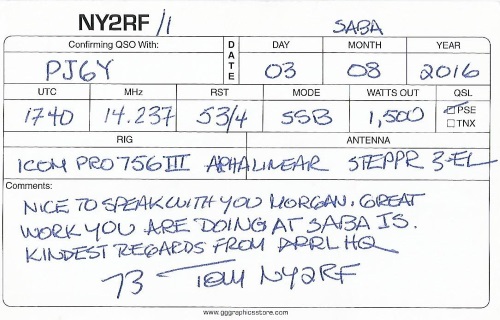 NY2RF /1 SABA
Confirming QSO With: DATE DAY MONTH YEAR
PJ6Y 03 08 2016
UTC MHz RST MODE WATTS OUT QSL
1740 14.237 53/4 SSB 1,500 PSE
TNX
RIG ANTENNA
ICOM PRO 756 III ALPHA LINEAR STEPPR 3-EL
Comments:
NICE TO SPEAK WITH YOU MORGAN. GREAT
WORK YOU ARE DOING AT SABA IS.
KINDEST REGARDS FROM ARRL HQ
73 TOM NY2RF
www.gggraphicsstore.com